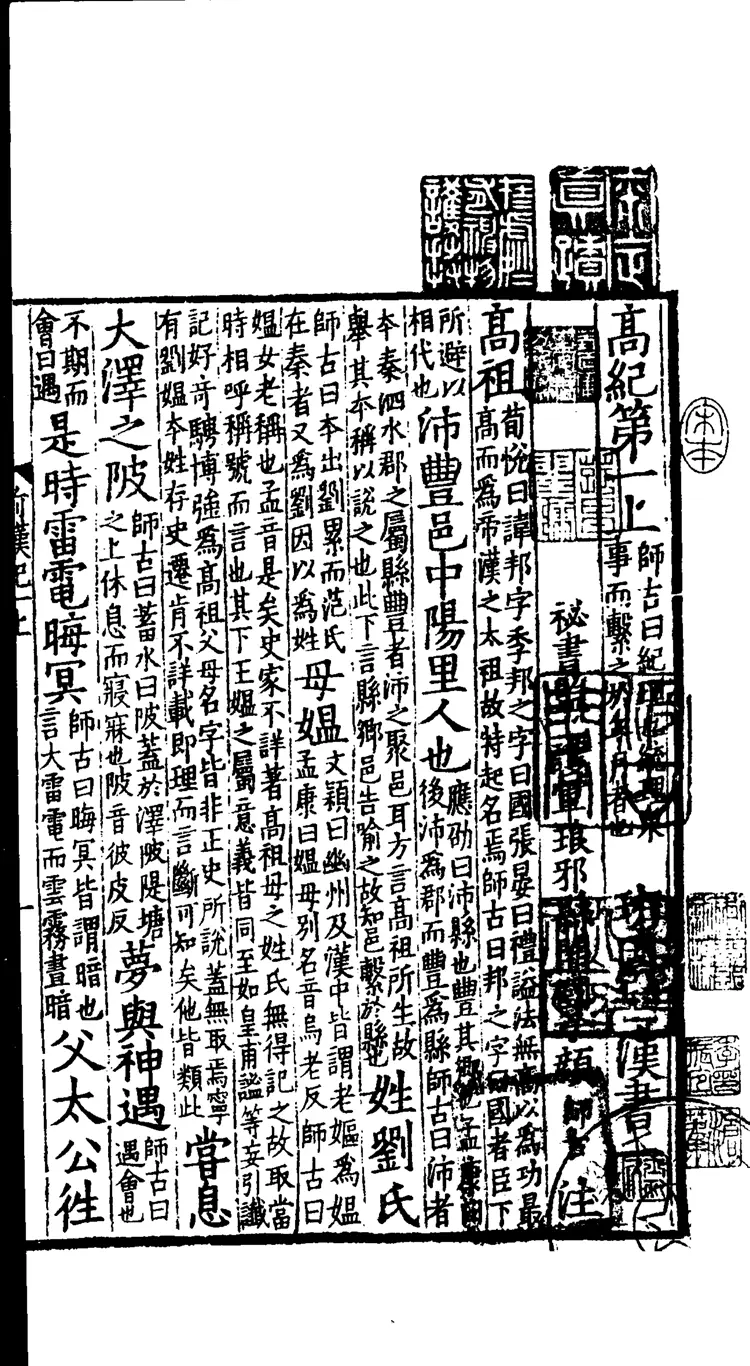 宋本
高紀第一上 師古曰紀理也統理衆事而繫之於年月者也 班固 漢書一
祕書監上護軍琅邪縣開國子顔 師古 注
高祖 荀悅曰諱邦字季邦之字曰國張晏曰禮謚法無高以爲功最高而爲帝漢之太祖故特起名焉師古曰邦之字曰國者臣下
所避以相代也 沛豐邑中陽里人也 應劭曰沛縣也豐其鄉也孟康曰後沛爲郡而豐爲縣師古曰沛者
本秦泗水郡之屬縣豐者沛之聚邑耳方言高祖所生故舉其本稱以說之也此下言縣鄉邑告喻之故知邑繫於縣也 姓劉氏
師古曰本出劉累而范氏在秦者又爲劉因以爲姓 母媼 文穎曰幽州及漢中皆謂老嫗爲媼孟康曰媼母別名音烏老反師古曰
媼女老稱也孟音是矣史家不詳著高祖母之姓氏無得記之故取當時相呼稱號而言也其下王媼之屬意義皆同至如皇甫謐等妄引讖
記好奇騁博強爲高祖父母名字皆非正史所說蓋無取焉寧有劉媼本姓存史遷肯不詳載即理而言斷可知矣他皆類此 嘗息
大澤之陂 師古曰蓄水曰陂蓋於澤陂隄塘之上休息而寢寐也陂音彼皮反 夢與神遇 師古曰遇會也
不期而會曰遇 是時雷電晦冥 師古曰晦冥皆謂暗也言大雷電而雲霧晝暗 父太公往